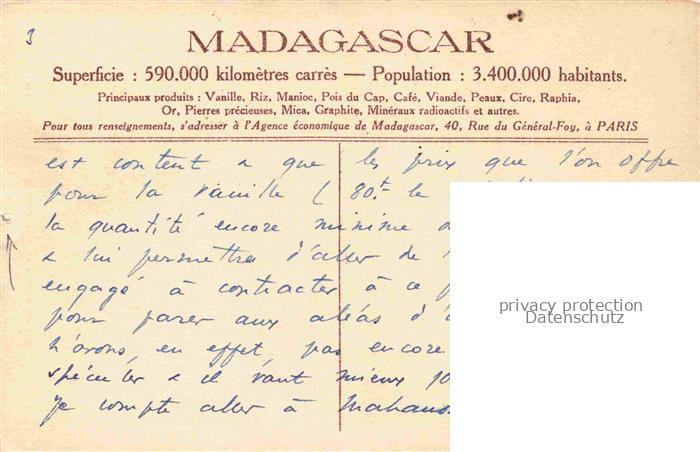 3
MADAGASCAR
Superficie : 590.000 kilomètres carrès — Population : 3.400.000 habitants.
Principaux produits : Vanille, Riz, Manioc, Pois du Cap, Café, Viande, Peaux, Cire, Raphia,
Or, Pierres précieuses, Mica, Graphite, Minéraux radioactifs et autres.
Pour tous renseignements, s'adresser à l'Agence économique de Madagascar, 40, Rue du Général-Foy, à PARIS
est content & que les prix que l'on offre
pour la vanille ( 80.f le
la quantité encore minime
& lui permettra d'aller de
engagé à contracter à ce
pour parer aux aléas d'
n'avons, en effet, pas encore
spéculer & il vaut mieux
Je compte aller à
privacy protection
Datenschutz